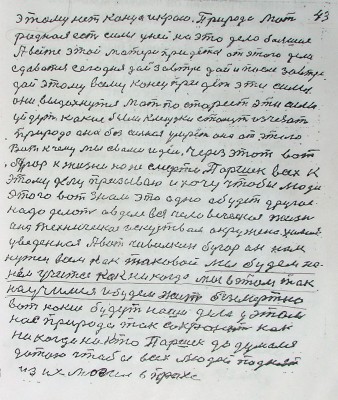 43
этому нет конца и краю. Природа мат
родная ест силы у ней на это дело большие
А вот этой матери придется от этого дела
сдаватся сегодня дай завтра дай и после завтра
дай этому всему конец придет эти силы
они выдохнутся мат по стареет эти силы
уйдут какие были клещухи станут изчезат
природа она без силная умрет она от этого
Вот к чему мы с вами идем. Через этот вот
бугор к жизни но не смерти Паршек всех к
этому делу призываю и хочу чтобы люди
этого вот знали это одно а будет другое
надо делат а в деле вся человеческая жизн
она техническая искуственая окружена химией
введенная А вот чивилкин бугор он нам
нужен всем как таковой мы будем на
нем учится как никогда мы в этом так
научимся и будем жит безмертно
вот какие будут наши дела у этом
нас природа так сохронит как
никогда никто Паршек додумался
до того чтобы всех людей поднят
из их могил в прахе